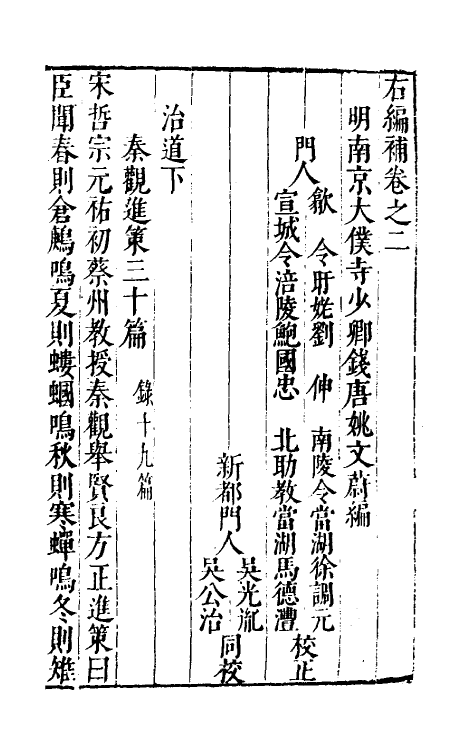 右編補卷之二
明南京太僕寺少卿錢唐姚文蔚編
門人
歙　令盱姥劉　伸　南陵令當湖徐調元
宣城令涪陵鮑國忠　北助教當湖馬德灃
校正
新都門人
吳光胤
吳公治
同校
治道下
秦觀進策三十篇　錄十九篇
宋哲宗元祐初蔡州教授秦觀舉賢良方正進策曰
臣聞春則倉鶊鳴夏則螻蟈鳴秋則寒蟬鳴冬則雉